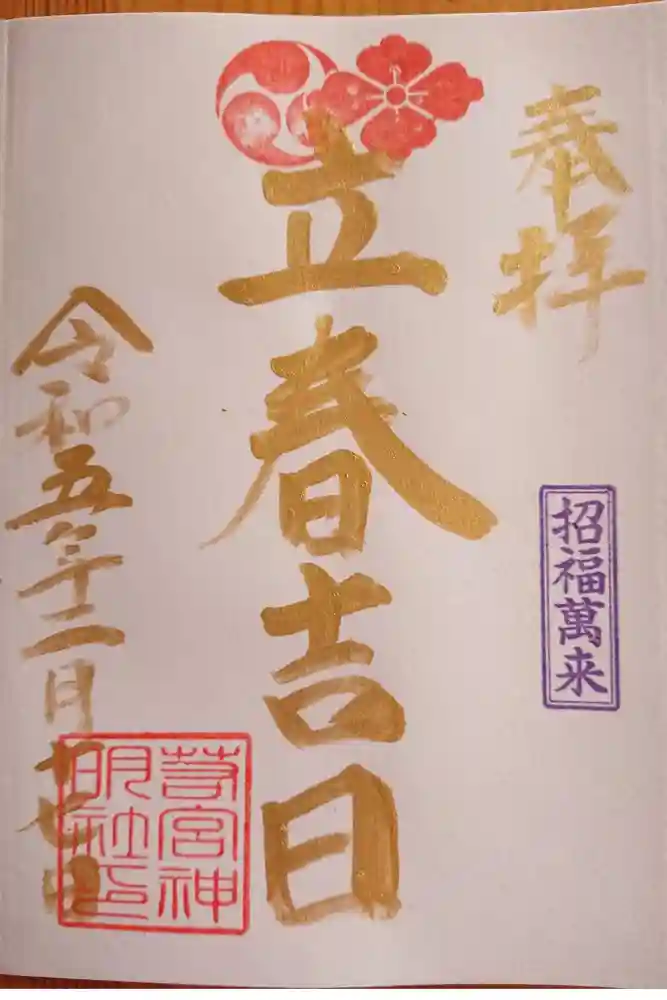 奉拝
招福萬来
立春吉日
令和五年二月日
若宮神
明社印